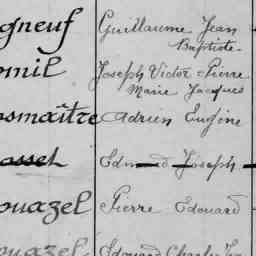 gneuf Guillaume Jean
Baptiste
mil Joseph Victor Pierre
Marie Jacques
smaître Adrien Eugène
asset Edmond Joseph
ouazel Pierre Edouard
ouazel Edouard Charles